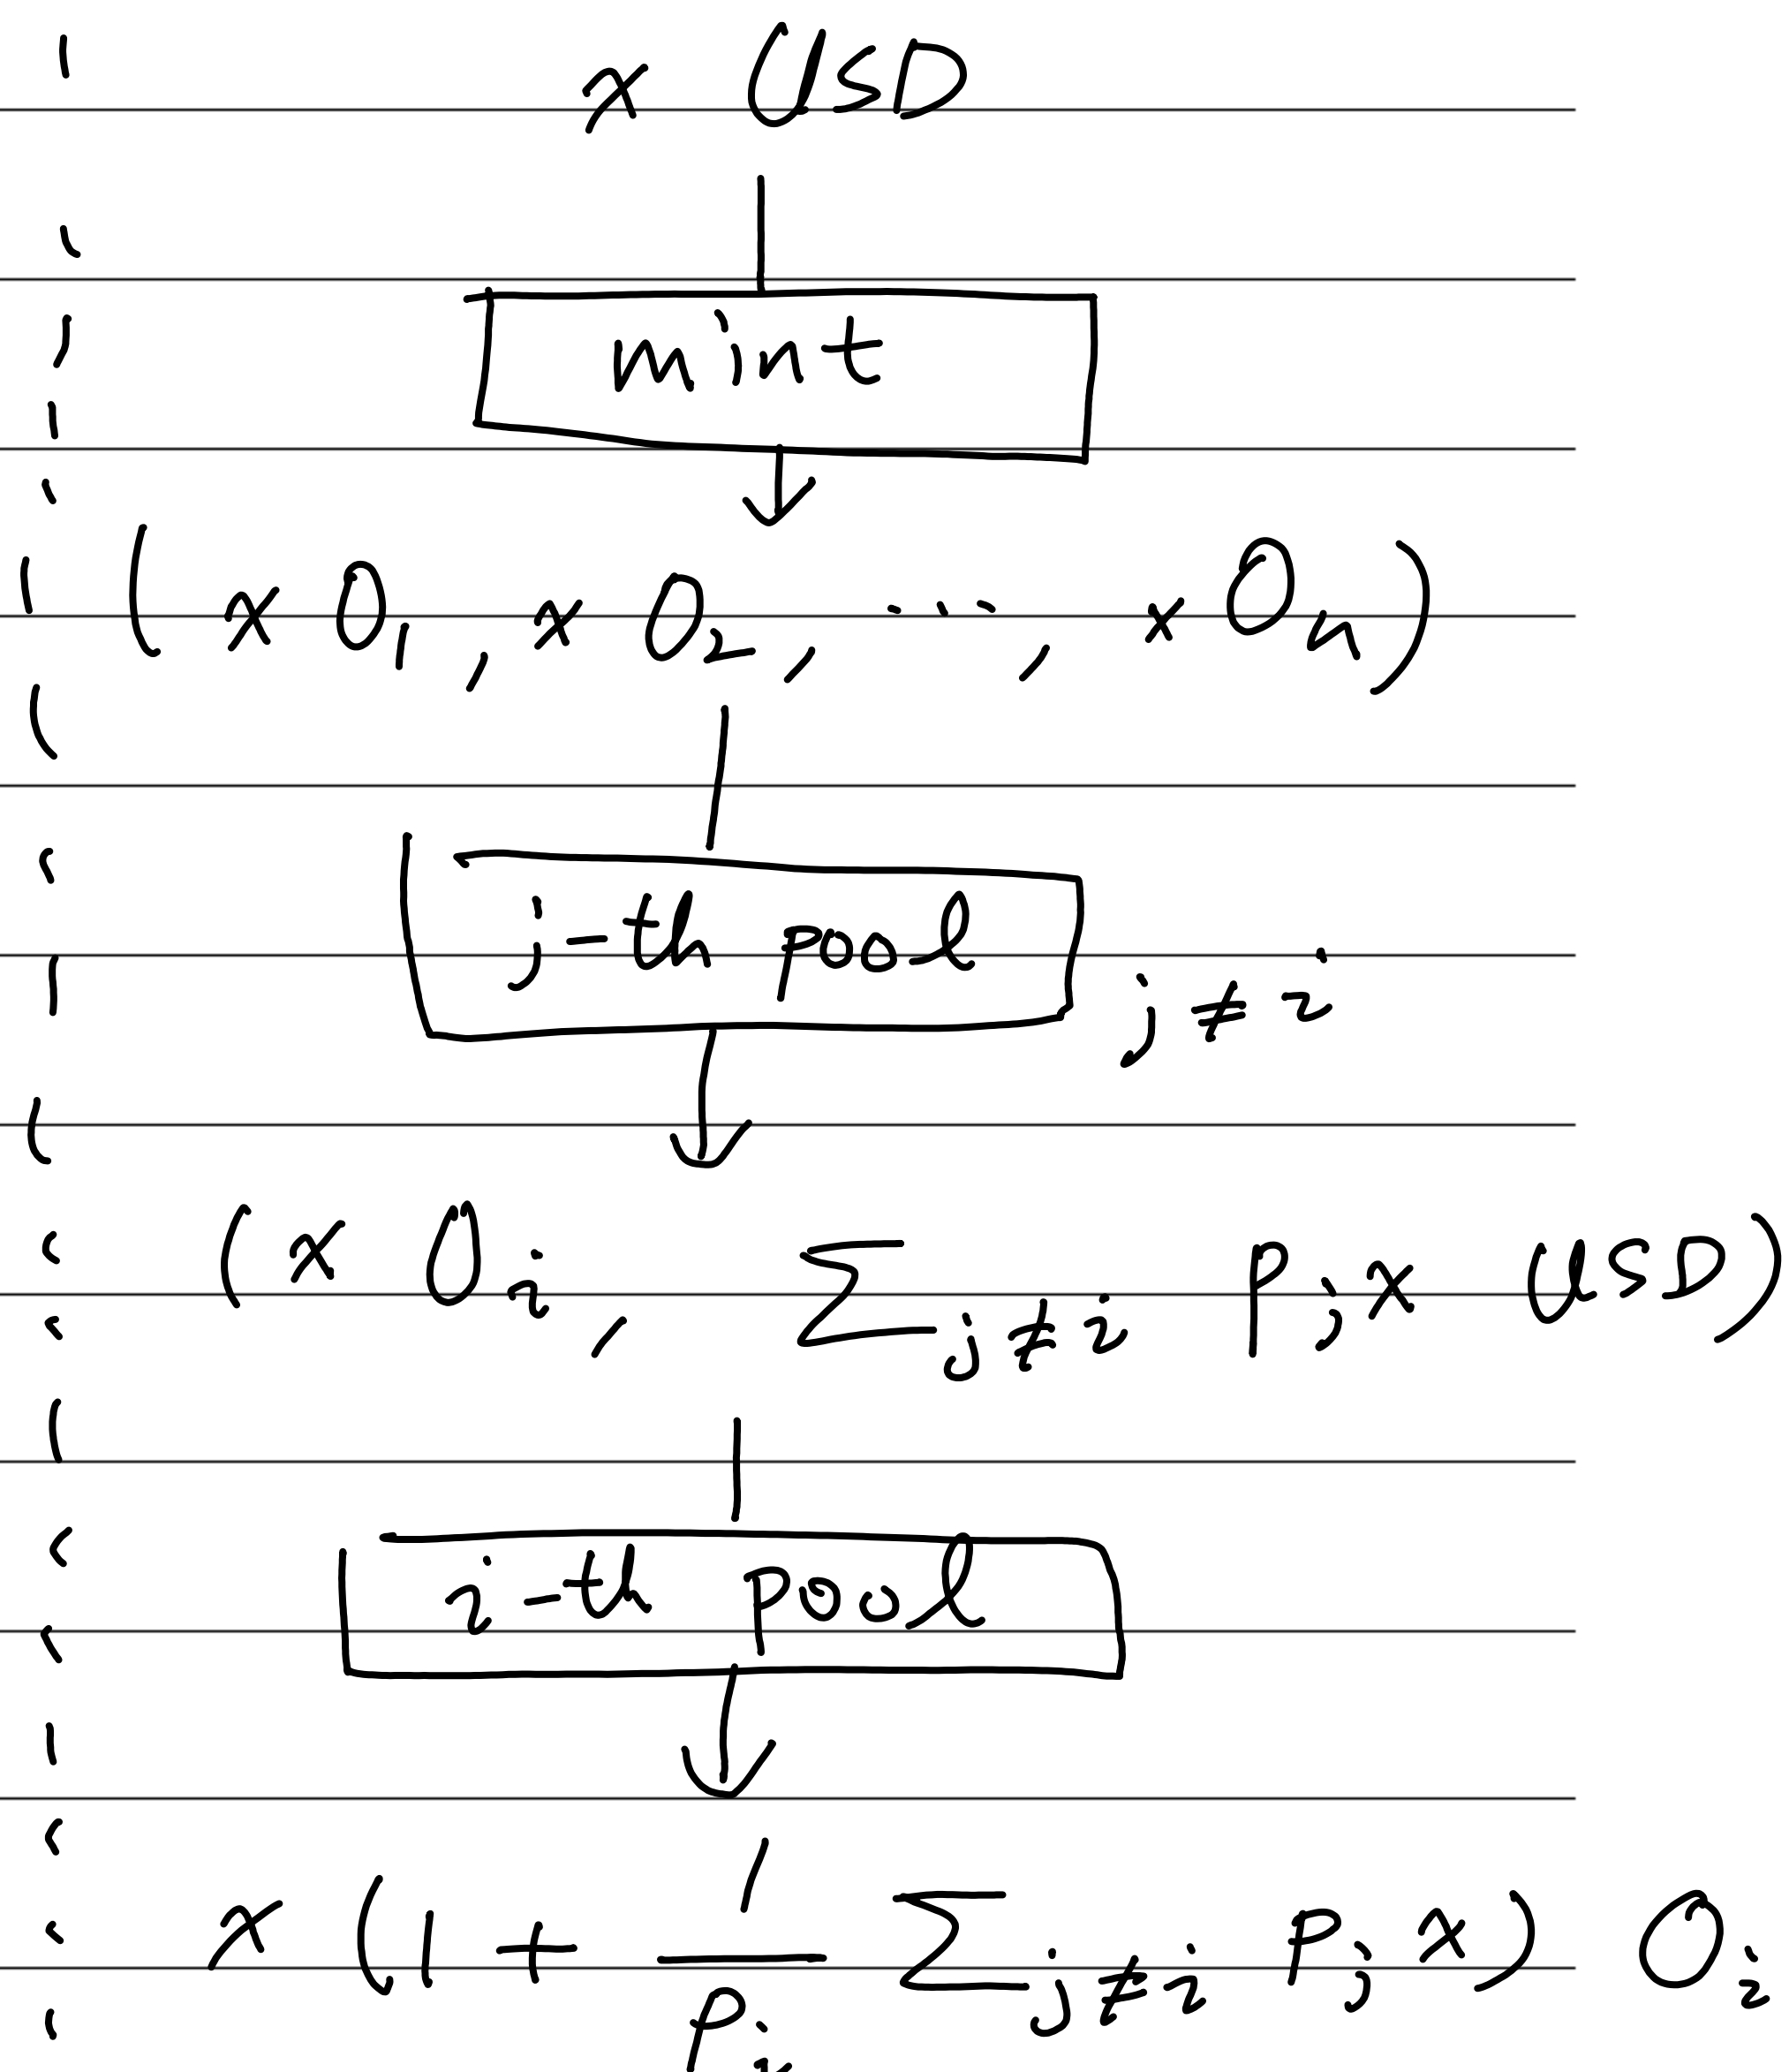 x USD
mint
(x O₁, x O₂, ..., x Oₙ)
j-th pool
j ≠ i
(x Oᵢ, Σ_{j≠i} Pⱼ x USD)
i-th pool
x (1 + 1/Pᵢ Σ_{j≠i} Pⱼ x) Oᵢ